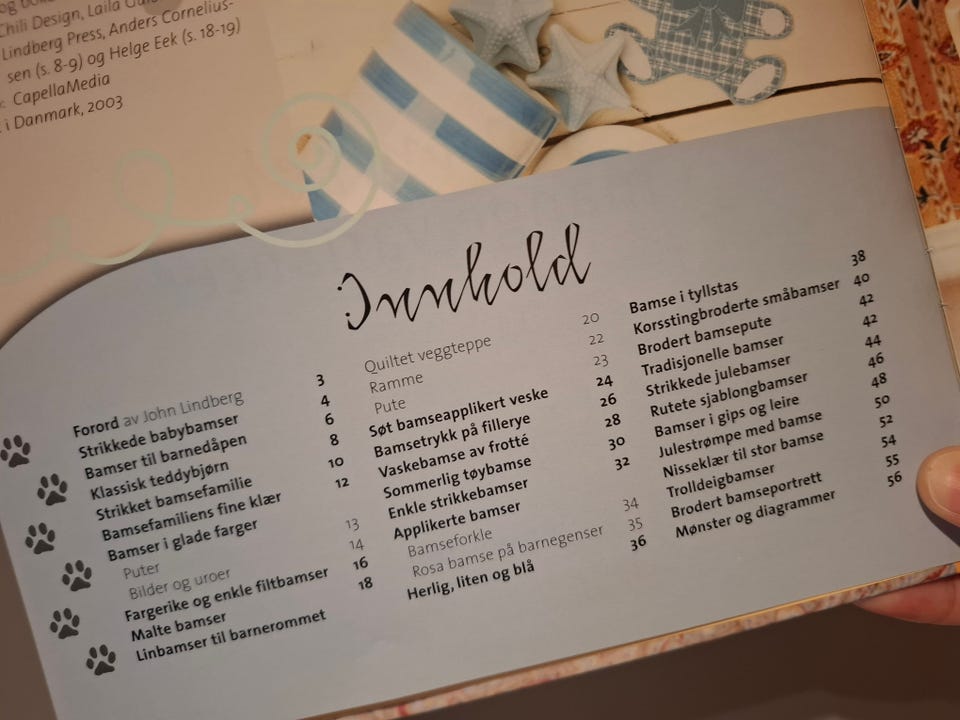 og
Chili Design, Laila
Lindberg Press, Anders Cornelius-
sen (s. 8-9) og Helge Eek (s. 18-19)
CapellaMedia
i Danmark, 2003
Innhold
Forord av John Lindberg 3
Strikkede babybamser 4
Bamser til barnedåpen 6
Klassisk teddybjørn 8
Strikket bamsefamilie 10
Bamsefamiliens fine klær 12
Bamser i glade farger
Puter 13
Bilder og uroer 14
Fargerike og enkle filtbamser 16
Malte bamser 18
Linbamser til barnerommet
Quiltet veggteppe 20
Ramme 22
Pute 23
Søt bamseapplikert veske 24
Bamsetrykk på fillerye 26
Vaskebamse av frotté 28
Sommerlig tøybamse 30
Enkle strikkebamser 32
Applikerte bamser
Bamseforkle 34
Rosa bamse på barnegenser 35
Herlig, liten og blå 36
Bamse i tyllstas 38
Korsstingbroderte småbamser 40
Brodert bamsepute 42
Tradisjonelle bamser 42
Strikkede julebamser 44
Rutete sjablongbamser 46
Bamser i gips og leire 48
Julestrømpe med bamse 50
Nisseklær til stor bamse 52
Trolldeigbamser 54
Brodert bamseportrett 55
Mønster og diagrammer 56